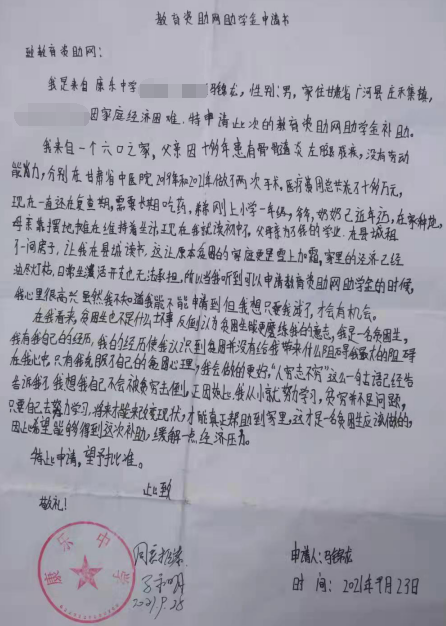 教育资助网助学金申请书
致教育资助网：
我是来自 康乐中学 龙，性别：男，家住甘肃省广河县庄禾集镇，
因家庭经济困难，特申请此次的教育资助网助学金补助。
我来自一个六口之家，父亲因十多年患有骨髓炎左腿残疾，没有劳动
能力，分别在甘肃省中医院2019年和2021年做了两次手术，医疗费用总共花了十多万元，
现在一直还在复查期，需要长期吃药，妹刚上小学一年级，爷爷，奶奶已近年迈，在家种地，
母亲靠摆地摊在维持着生活，现在我就读初中，父母亲为了我的学业，在县城租
了一间房子，让我在县城读书，这让原本贫困的家庭更是雪上加霜，家里的经济已经
难，日常生活开支也无法承担，所以当我听到可以申请教育资助网助学金的时候，
我心里很高兴虽然我不知道我能不能申请到但我想只要我试了，才会有机会。
在我看来，贫困生也不是什么坏事 反倒认为贫困生能更磨练我的意志，我是一名贫困生，
我有我自己的经历，我的经历使我认识到贫困并没有给我带来什么阻碍最大的阻碍
在我心中，只有我克服了自己的贫困心理，我会做的更好，“人穷志不穷”这么一句古语已经告
告诉了我我想我自己不会被贫穷击倒，正因如此，我从小就努力学习，贫穷并不是问题，
只要自己去努力学习，将来才能来改变现状，才能真正帮助到家里，这才是一名贫困生应该做的，
因此希望能够得到这次补助，缓解一点经济压力。
特此申请，望予批准。
此致
敬礼！
康乐中学
同意推荐
2021.9.25
申请人：龙
时 间：2021年9月23日